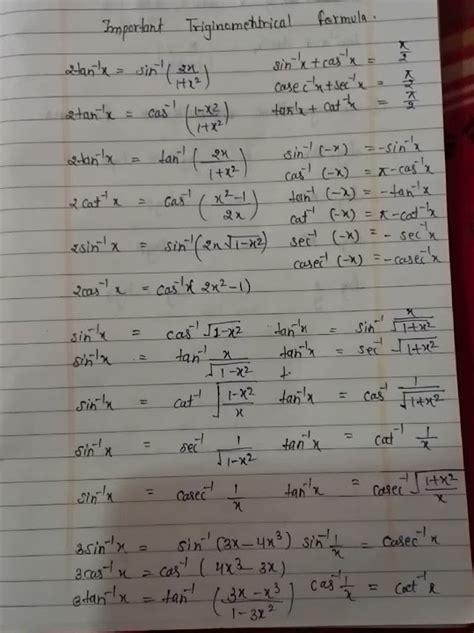 Important Triginometrical formula.
2tan⁻¹x = sin⁻¹(2x/1+x²) sin⁻¹x + cas⁻¹x = π/2
casec⁻¹x + sec⁻¹x = π/2
2tan⁻¹x = cas⁻¹(1-x²/1+x²) tan⁻¹x + cat⁻¹x = π/2
2tan⁻¹x = tan⁻¹(2x/1+x²) sin⁻¹(-x) = -sin⁻¹x
cas⁻¹(-x) = π-cas⁻¹x
2cat⁻¹x = cas⁻¹(x²-1/2x) tan⁻¹(-x) = -tan⁻¹x
cat⁻¹(-x) = π-cat⁻¹x
2sin⁻¹x = sin⁻¹(2x√1-x²) sec⁻¹(-x) = -sec⁻¹x
casec⁻¹(-x) = -casec⁻¹x
2cas⁻¹x = cas⁻¹(2x²-1)
sin⁻¹x = cas⁻¹√1-x² tan⁻¹x = sin⁻¹ x/√1+x²
sin⁻¹x = tan⁻¹ x/√1-x² tan⁻¹x = sec⁻¹√1+x²
sin⁻¹x = cat⁻¹√1-x²/x tan⁻¹x = cas⁻¹ 1/√1+x²
sin⁻¹x = sec⁻¹ 1/√1-x² tan⁻¹x = cat⁻¹ 1/x
sin⁻¹x = casec⁻¹ 1/x tan⁻¹x = casec⁻¹√1+x²/x
3sin⁻¹x = sin⁻¹(3x-4x³) sin⁻¹ 1/x = casec⁻¹x
3cas⁻¹x = cas⁻¹(4x³-3x)
3tan⁻¹x = tan⁻¹(3x-x³/1-3x²) cas⁻¹ 1/x = cat⁻¹x